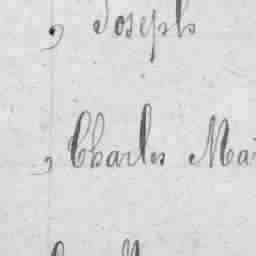 , Joseph
, Charles Ma